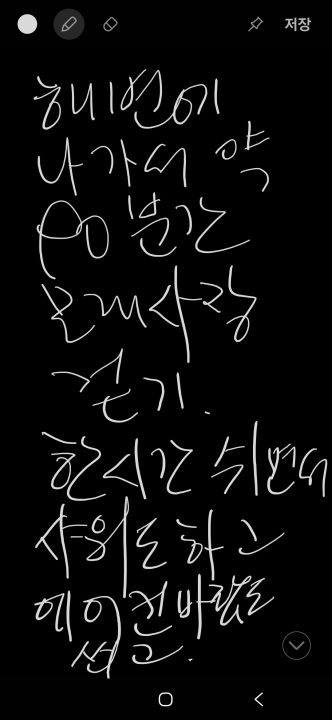 저장
해변에
나가서 약
80분간
모래사장
걷기.
한시간 쉬면서
샤워도 하고
에어컨바람도
쐬고.